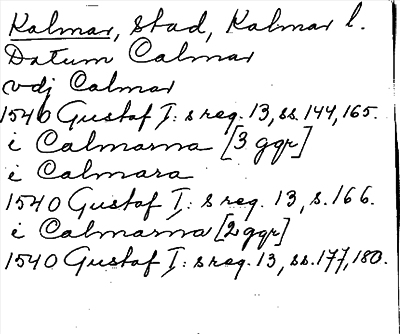 Kalmar, stad, Kalmar l.
Datum Calmar
vdj Calmar
1540 Gustaf I:s reg. 13, ss. 144, 165.
i Calmarna [3 ggr]
i Calmara
1540 Gustaf I:s reg. 13, s. 166.
i Calmarna [2 ggr]
1540 Gustaf I:s reg. 13, ss. 177, 180.